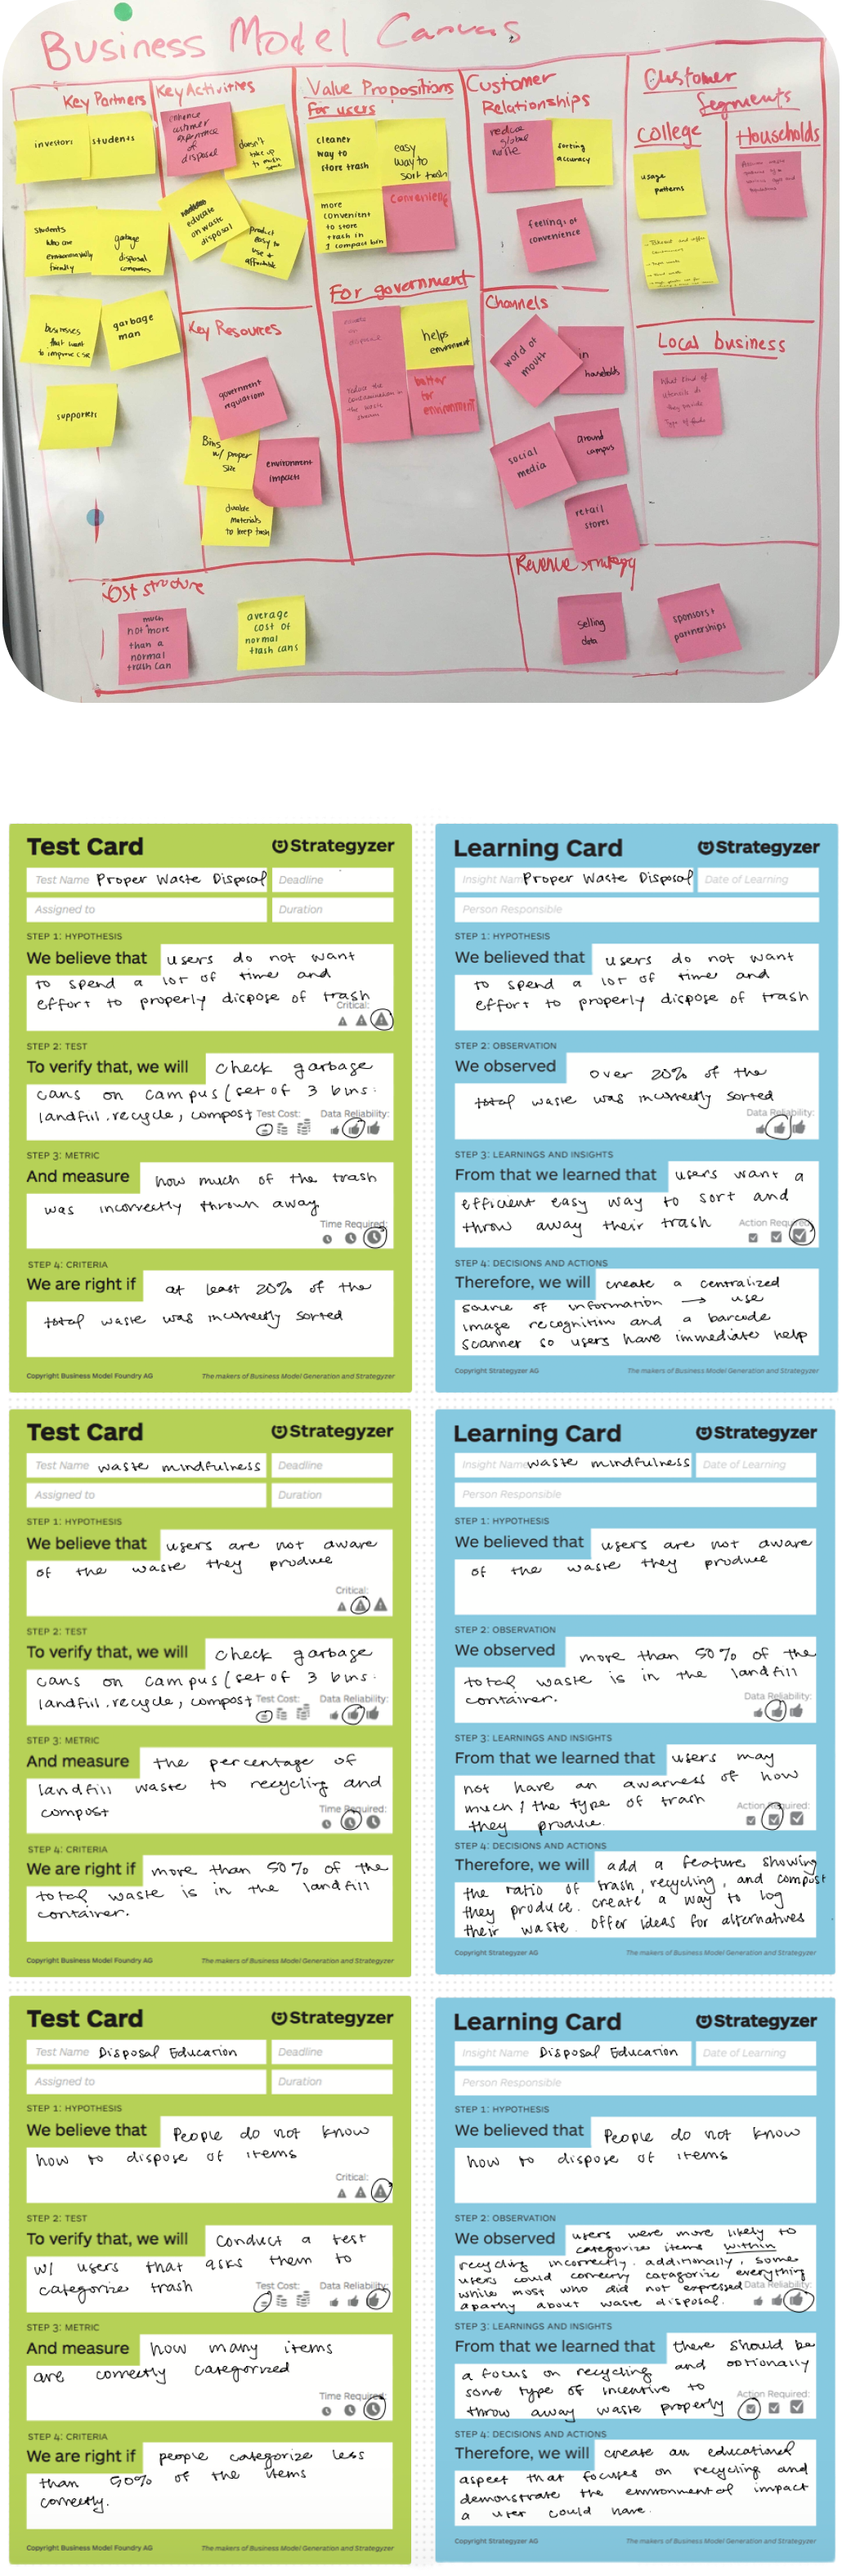 Business Model Canvas
Key Partners
investors
students
students
who are
environmentally
friendly
garbage
disposal
companies
businesses
that want
to improve csr
garbage
man
supporters
Key Activities
enhance
customer
experience
of
disposal
doesn't
take up
to much
space
educate
on waste
disposal
product
easy to
use &
affordable
Key Resources
government
regulations
Bins
w/ proper
size
environment
impacts
durable
materials
to keep trash
Value Propositions
For users
cleaner
way to
store trash
easy
way to
sort trash
more
convenient
to store
trash in
1 compact bin
Convenience
For government
reduce the
contamination in
the waste
stream
helps
environment
better
for
environment
Customer
Relationships
reduce
global
waste
sorting
accuracy
feelings of
convenience
Channels
word of
mouth
in
households
social
media
around
campus
retail
stores
Customer
Segments
College
usage
patterns
Households
Local business
What kind of
utensils do
they provide
Type of foods
Cost structure
much
not more
than a
normal
trash can
average
cost of
normal
trash cans
Revenue strategy
selling
data
sponsors &
partnerships
Test Card
Strategyzer
Test Name Proper Waste Disposal
Deadline
Assigned to
Duration
STEP 1: HYPOTHESIS
We believe that users do not want
to spend a lot of time and
effort to properly dispose of trash
Critical:
STEP 2: TEST
To verify that, we will check garbage
cans on campus (set of 3 bins:
landfill, recycle, compost
Test Cost: Data Reliability:
STEP 3: METRIC
And measure how much of the trash
was incorrectly thrown away
Time Required:
STEP 4: CRITERIA
We are right if at least 20% of the
total waste was incorrectly sorted
Copyright Business Model Foundry AG
The makers of Business Model Generation and Strategyzer
Learning Card
Strategyzer
Insight Name Proper Waste Disposal
Date of Learning
Person Responsible
STEP 1: HYPOTHESIS
We believed that users do not want
to spend a lot of time and
effort to properly dispose of trash
STEP 2: OBSERVATION
We observed over 20% of the
total waste was incorrectly sorted
Data Reliability:
STEP 3: LEARNINGS AND INSIGHTS
From that we learned that users want a
efficient easy way to sort and
throw away their trash
Action Required:
STEP 4: DECISIONS AND ACTIONS
Therefore, we will create a centralized
source of information → use
image recognition and a barcode
scanner so users have immediate help
Copyright Strategyzer AG
The makers of Business Model Generation and Strategyzer
Test Card
Strategyzer
Test Name waste mindfulness
Deadline
Assigned to
Duration
STEP 1: HYPOTHESIS
We believe that users are not aware
of the waste they produce
Critical:
STEP 2: TEST
To verify that, we will check garbage
cans on campus (set of 3 bins:
landfill, recycle, compost
Test Cost: Data Reliability:
STEP 3: METRIC
And measure the percentage of
landfill waste to recycling and
compost
Time Required:
STEP 4: CRITERIA
We are right if more than 50% of the
total waste is in the landfill
container.
Copyright Business Model Foundry AG
The makers of Business Model Generation and Strategyzer
Learning Card
Strategyzer
Insight Name waste mindfulness
Date of Learning
Person Responsible
STEP 1: HYPOTHESIS
We believed that users are not aware
of the waste they produce
STEP 2: OBSERVATION
We observed more than 50% of the
total waste is in the landfill
container.
Data Reliability:
STEP 3: LEARNINGS AND INSIGHTS
From that we learned that users may
not have an awarness of how
much / the type of trash
they produce.
Action Required:
STEP 4: DECISIONS AND ACTIONS
Therefore, we will add a feature showing
the ratio of trash, recycling, and compost
they produce. create a way to log
their waste. offer ideas for alternatives
Copyright Strategyzer AG
The makers of Business Model Generation and Strategyzer
Test Card
Strategyzer
Test Name Disposal Education
Deadline
Assigned to
Duration
STEP 1: HYPOTHESIS
We believe that People do not know
how to dispose of items
Critical:
STEP 2: TEST
To verify that, we will conduct a test
w/ users that asks them to
categorize trash
Test Cost: Data Reliability:
STEP 3: METRIC
And measure how many items
are correctly categorized
Time Required:
STEP 4: CRITERIA
We are right if people categorize less
than 50% of the items
correctly.
Copyright Business Model Foundry AG
The makers of Business Model Generation and Strategyzer
Learning Card
Strategyzer
Insight Name Disposal Education
Date of Learning
Person Responsible
STEP 1: HYPOTHESIS
We believed that People do not know
how to dispose of items
STEP 2: OBSERVATION
We observed users were more likely to
categorize items within
recycling incorrectly. additionally, some
users could correctly catagorize everything
while most who did not expressed
apathy about waste disposal.
Data Reliability:
STEP 3: LEARNINGS AND INSIGHTS
From that we learned that there should be
a focus on recycling and optionally
some type of incentive to
throw away waste properly
Action Required:
STEP 4: DECISIONS AND ACTIONS
Therefore, we will create an educational
aspect that focuses on recycling and
demonstrate the environmental impact
a user could have.
Copyright Strategyzer AG
The makers of Business Model Generation and Strategyzer